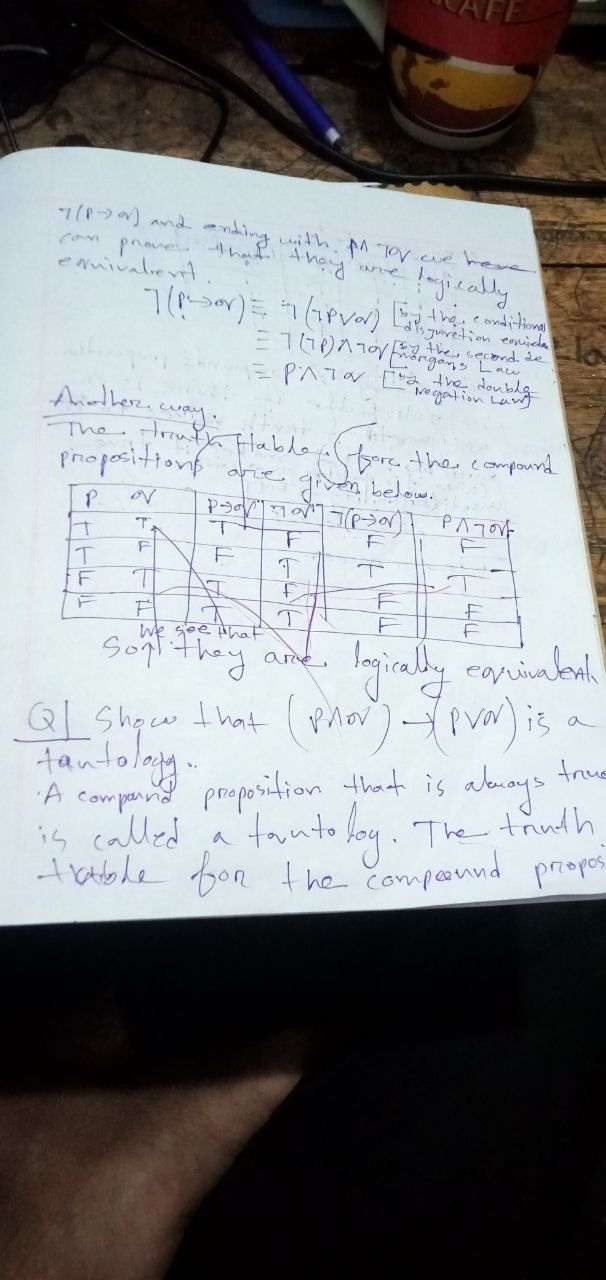 CAFE
¬(P→q) and ending with P∧¬q we have
can prove that they are logically
equivalent.
¬(P→q) ≡ ¬(¬P∨q) [by the conditional
disjunction equivale
≡ ¬(¬P)∧¬q [by the second de
morgans Law
≡ P∧¬q [by the double
Negation Law]
Another way.
The truth table fore the compound
propositions are given below.
P q P→q ¬q ¬(P→q) P∧¬q
T T T F F F
T F F T T T
F T T F F F
F F T T F F
we see that
So, they are logically equivalent
Q| Show that (P∧q)→(P∨q) is a
tautology.
A compound proposition that is always true
is called a tautology. The truth
table for the compound propos